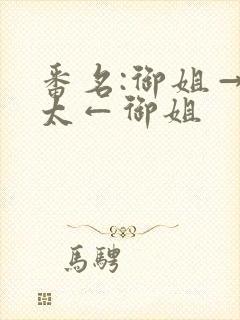 番名:御姐→
太←御姐
馬騁